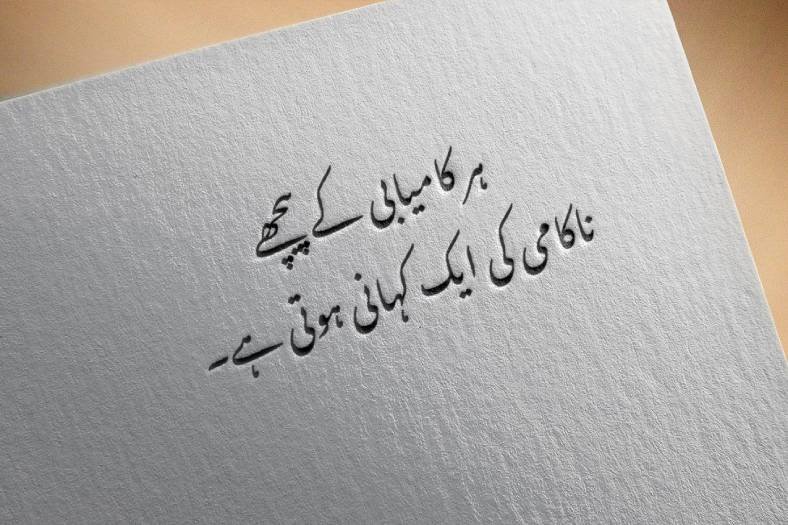 ہر کامیابی کے پیچھے
ناکامی کی ایک کہانی ہوتی ہے۔